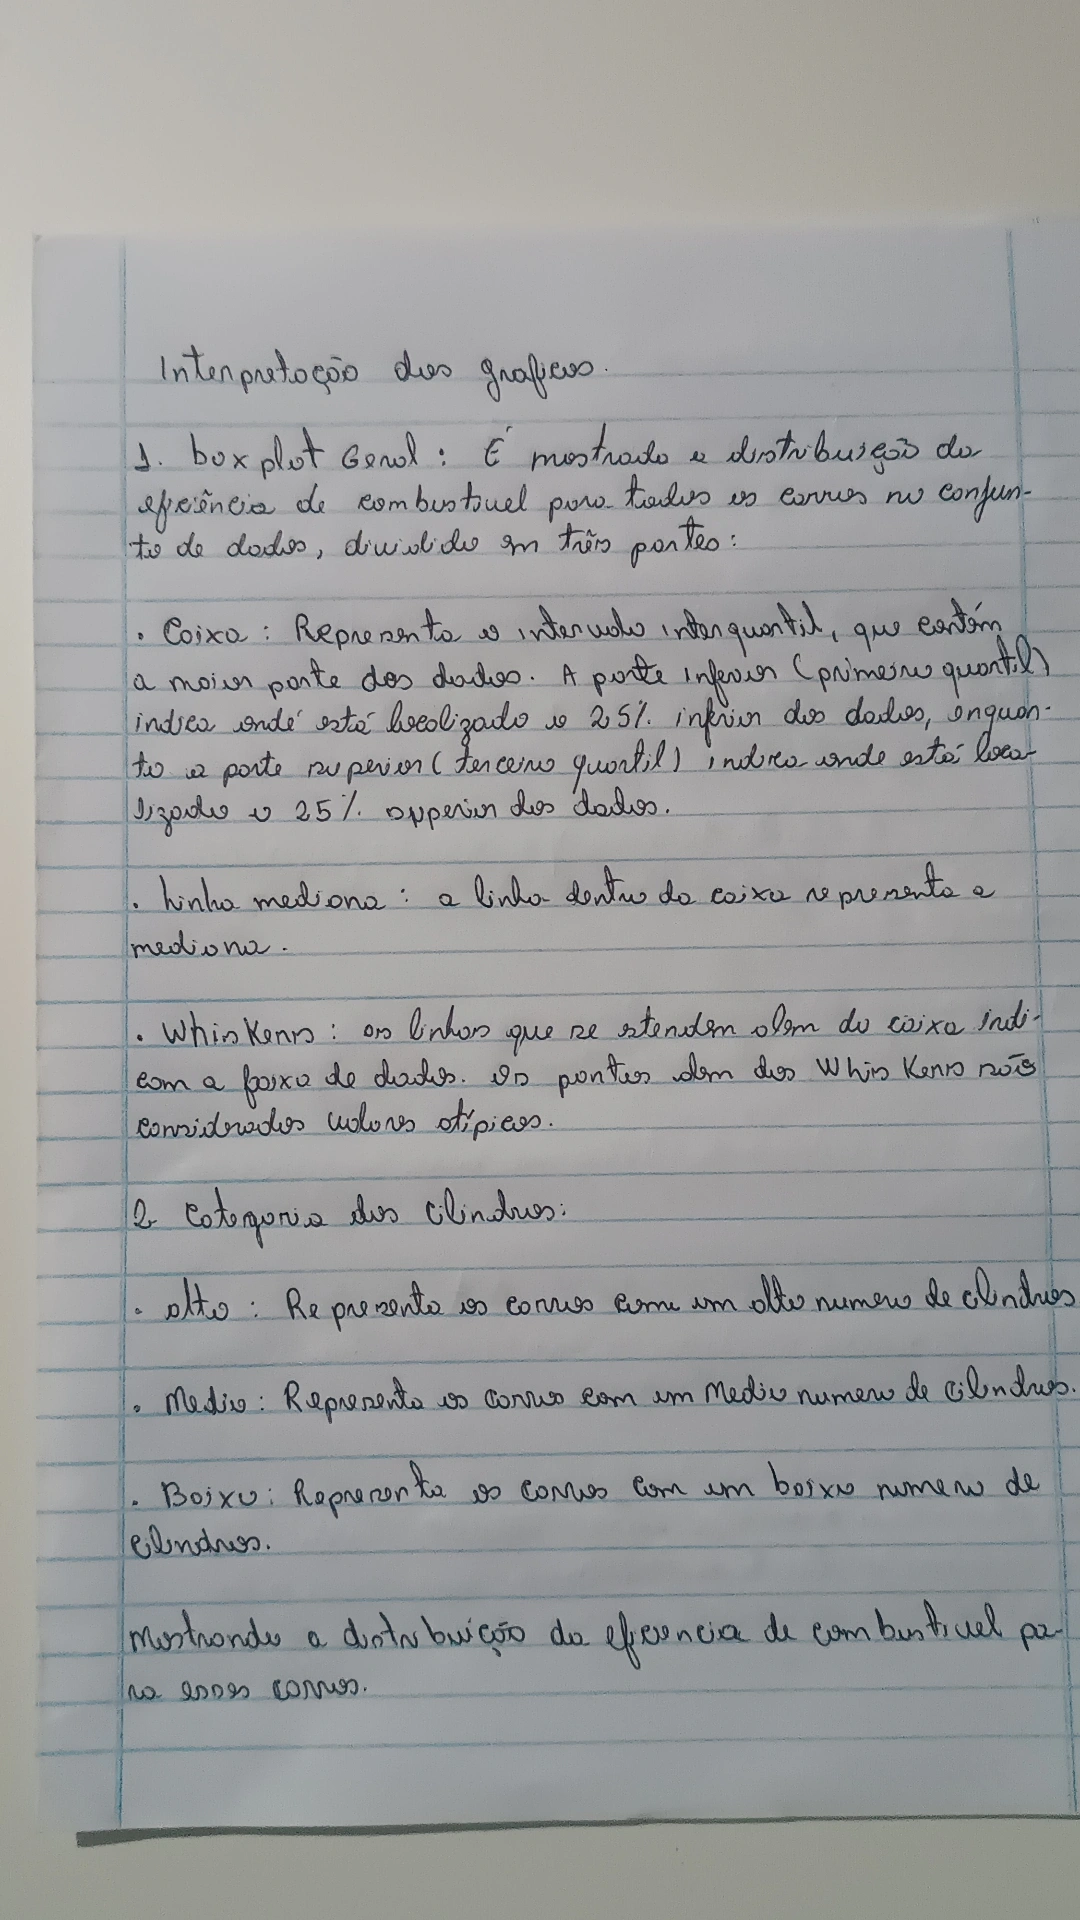 Interpretação dos graficos.
1. box plot Geral : É mostrado a distribuição da
eficiência de combustivel para todos os carros no conjun-
to de dados, dividido em três partes:
. Caixa : Representa o intervalo interquartil, que contém
a maior parte dos dados. A parte inferior (primeiro quartil)
indica onde está localizado o 25% inferior dos dados, enquan-
to a parte superior (terceiro quartil) indica onde está loca-
lizado o 25% superior dos dados.
. Linha mediana : a linha dentro da caixa representa a
mediana.
. Whiskers : as linhas que se estendem alem da caixa indi-
cam a faixa de dados. Os pontos alem dos Whiskers são
considerados valores atípicos.
2 Categoria dos cilindros:
. alto : Representa os carros com um alto numero de cilindros
. Medio : Representa os carros com um Medio numero de cilindros.
. Baixo : Representa os carros com um baixo numero de
cilindros.
Mostrando a distribuição da eficiencia de combustivel pa-
ra esses carros.